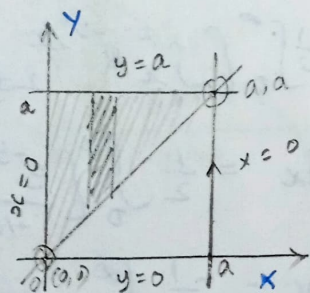 Y
y = a
a
a, a
x = 0
x = 0
(0, 0)
a
y = 0
X